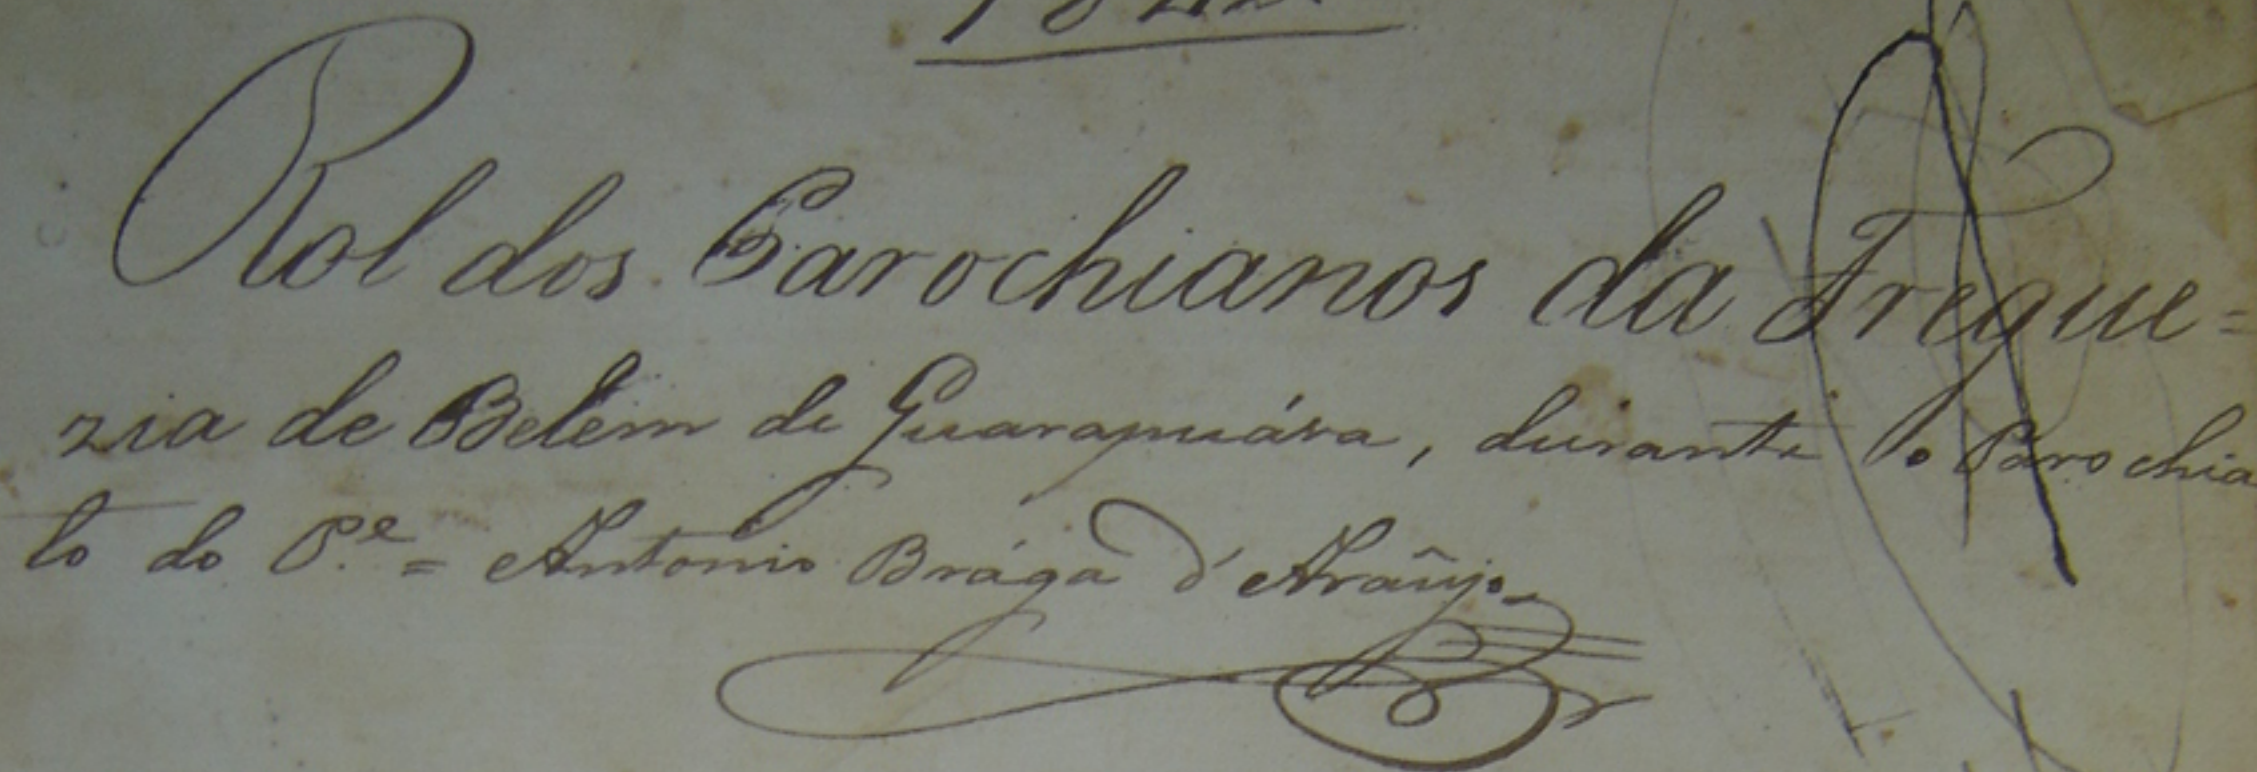 Rol dos Parochianos da Fregue=
zia de Belém de Guarapuáva, durante o Parochia
to do P.e = Antonio Brága d'Araûjo